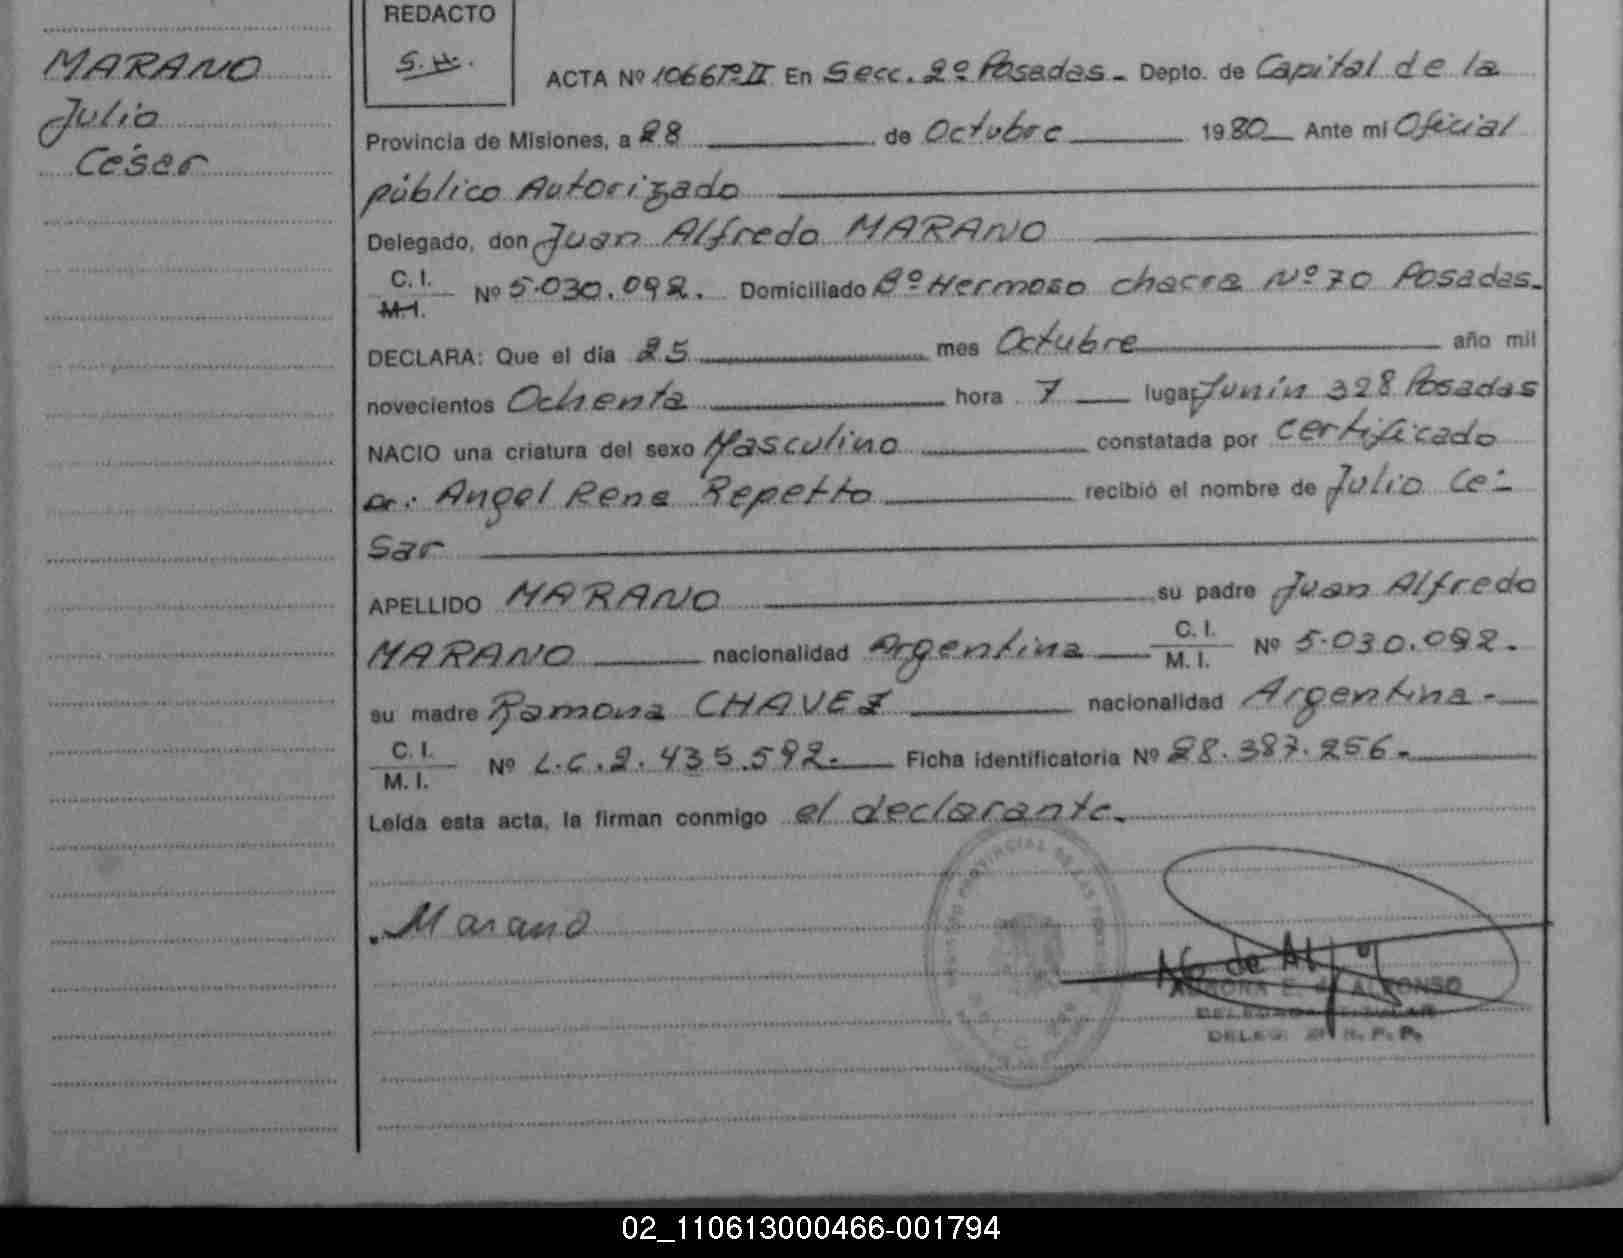 MARANO
Julio
César
REDACTO
S.H.
ACTA Nº 1066 Tº II En Secc. 2º Posadas - Depto. de Capital de la
Provincia de Misiones, a 28 de Octubre 1980 Ante mi Oficial
público Autorizado
Delegado, don Juan Alfredo MARANO
C. I.
M. I. Nº 5.030.092. Domiciliado Bº Hermoso chacra Nº 70 Posadas.
DECLARA: Que el día 25 mes Octubre año mil
novecientos Ochenta hora 7 lugar Junin 328 Posadas
NACIO una criatura del sexo Masculino constatada por certificado
Dr. Angel Rene Repetto recibió el nombre de Julio Cé-
sar
APELLIDO MARANO su padre Juan Alfredo
MARANO nacionalidad Argentina C. I.
M. I. Nº 5.030.092.
su madre Ramona CHAVEZ nacionalidad Argentina -
C. I.
M. I. Nº L.C. 2.435.592. Ficha identificatoria Nº 28.387.256.
Leída esta acta, la firman conmigo el declarante.
Marano
AURORA E. de ALFONSO
DELEGADA TITULAR
02_110613000466-001794